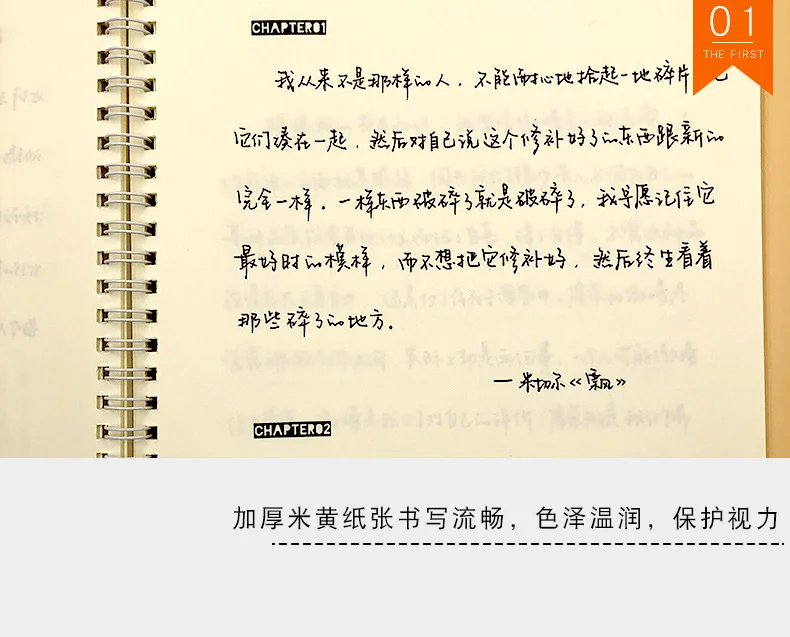 CHAPTER01
01
THE FIRST
我从来不是那样的人，不能耐心地拾起一地碎片
它们凑在一起，然后对自己说这个修补好了的东西跟新的
完全一样。一样东西破碎了就是破碎了，我宁愿记住它
最好时的模样，而不想把它修补好，然后终生看着
那些碎了的地方。
—米切尔《飘》
CHAPTER02
加厚米黄纸张书写流畅，色泽温润，保护视力